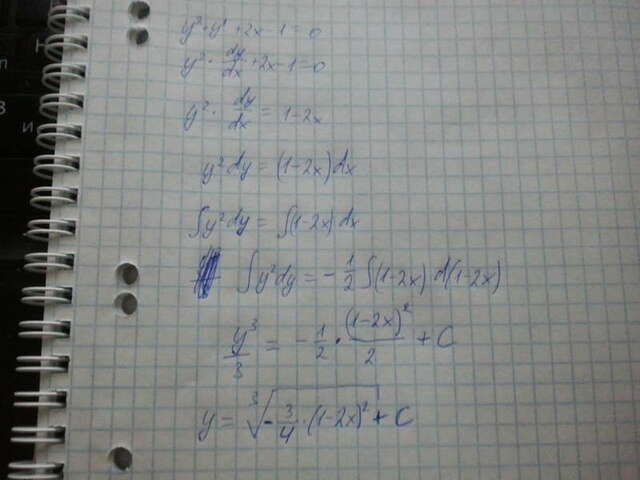 y² · y' + 2x - 1 = 0
y² · dy/dx + 2x - 1 = 0
y² · dy/dx = 1 - 2x
y² dy = (1 - 2x) dx
∫ y² dy = ∫ (1 - 2x) dx
∫ y² dy = - 1/2 ∫ (1 - 2x) d(1 - 2x)
y³/3 = - 1/2 · (1 - 2x)²/2 + C
y = ∛(- 3/4 · (1 - 2x)² + C)